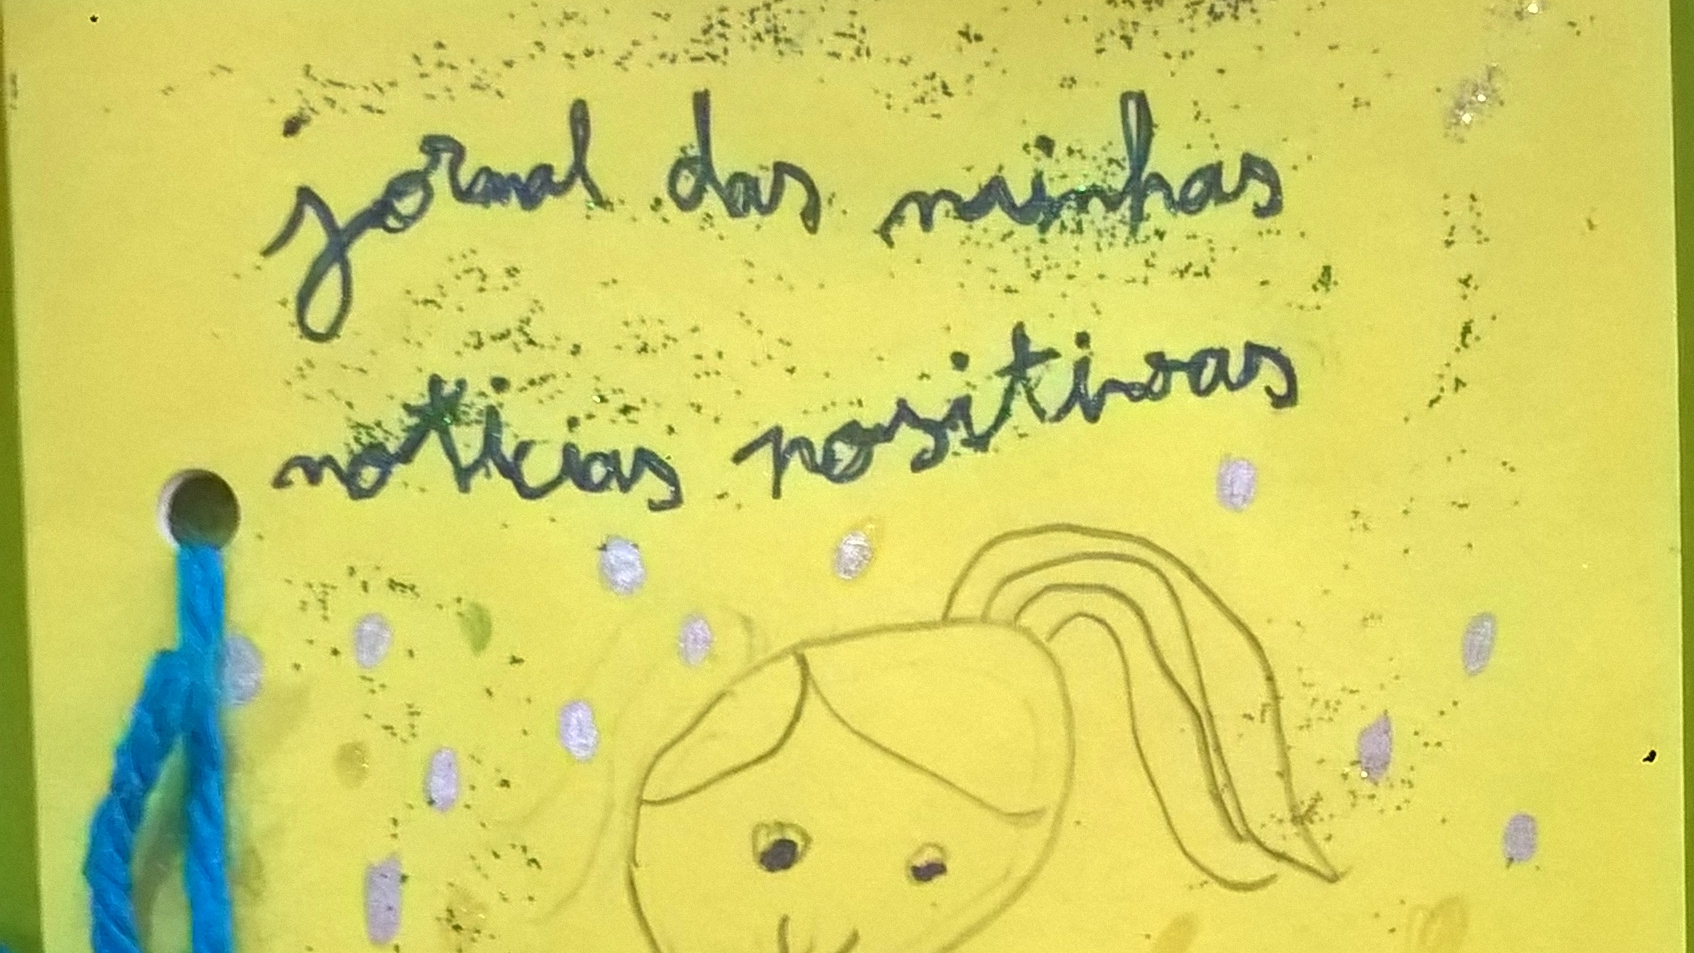 jornal das minhas
noticias positivas